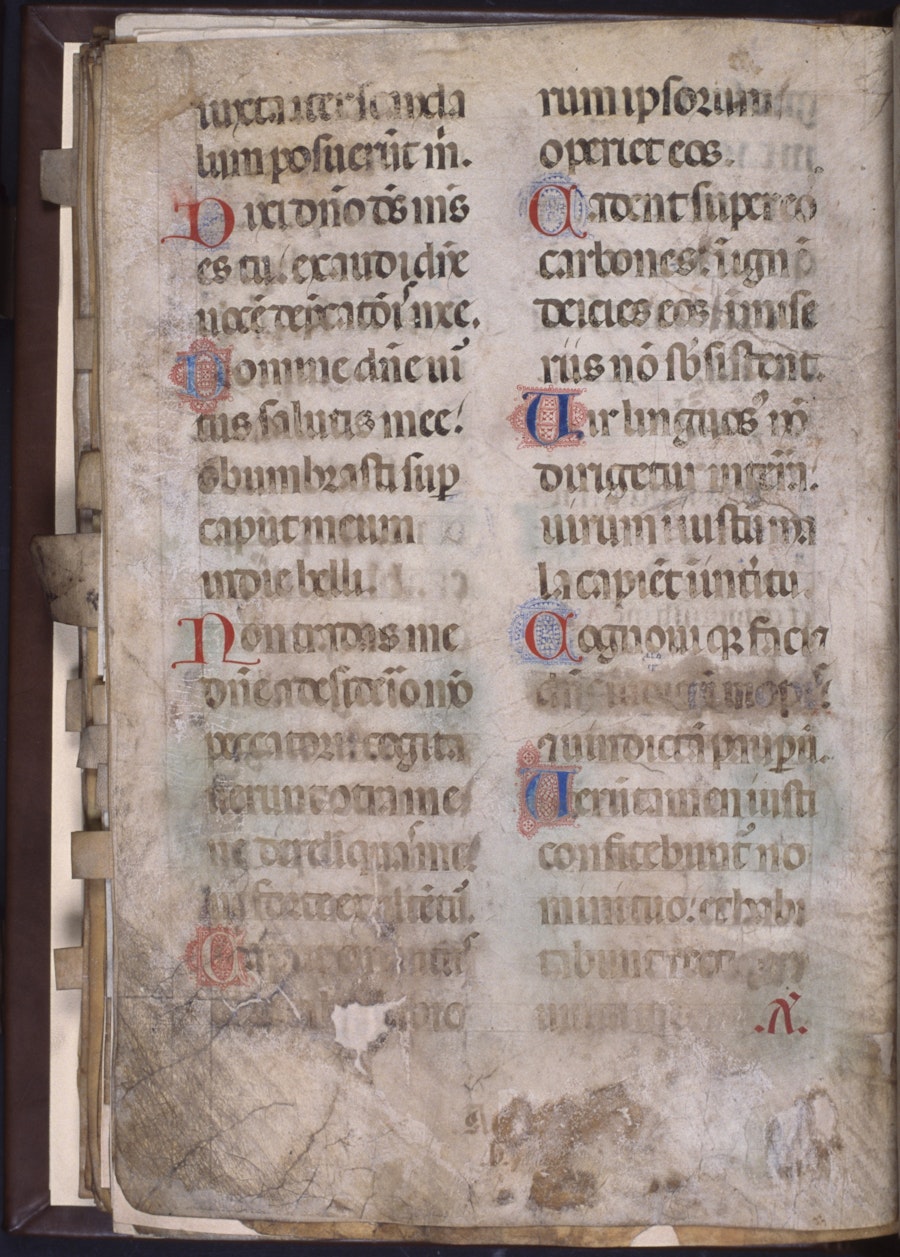 iuxta iter scanda
lum posuerūt m̄.
Dixi dn̄o ds̄ ms̄
es tu: exaudi dn̄e
uocē dep̄catōis mee.
Domine dn̄e uir
tus salutis mee:
obumbrasti sup̄
caput meum
in die belli.
Non tradas me
dn̄e a desiderio mō
peccatori: cogita
uerunt contra me
ne derelinquas me:
ne forte exaltēt̄.
Caput
labor
rum ipsorum
operiet eos.
Cadent super eo
carbones: ī igne
deicies eos: ī mise
riis nō sbsistent.
Uir linguos⁹ nō
dirigetur in terra:
uirum iniustū ma
la capiēt ī interitu.
Cognoui qz faciet
dn̄s iudiciū inopis:
7 uindictā paup̄ū.
Uerūtamen iusti
confitebunt̄ no
mini tuo: et habi
tabunt recti
.A.